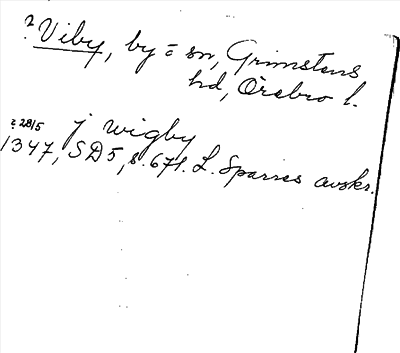 ? Viby, by = sn, Grimstens
hd, Örebro l.
? 28/5 j wigby
1347, SD5, s. 671. L. Sparres avskr.